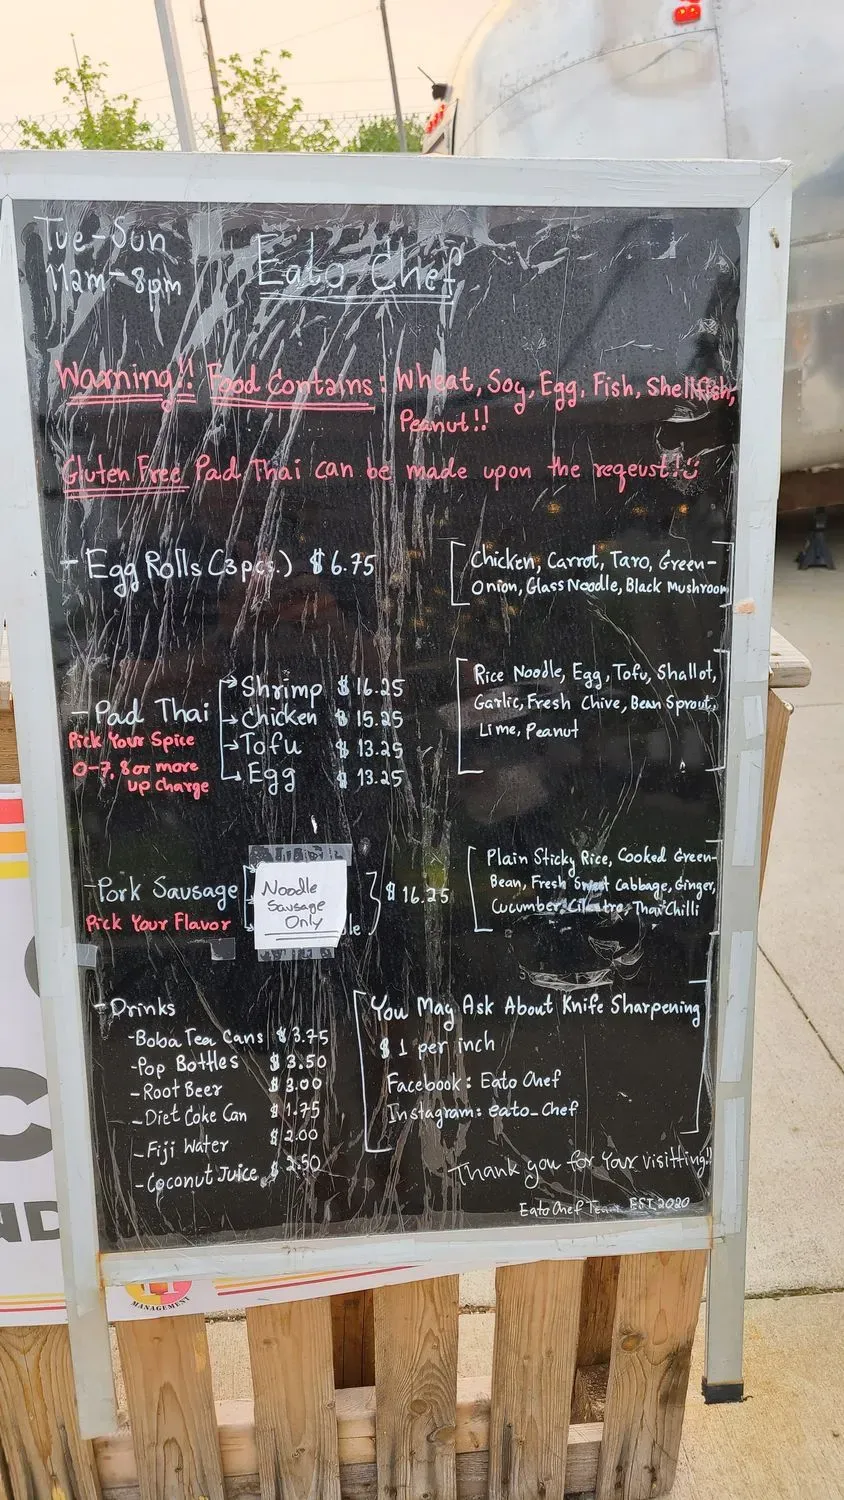 Tue-Sun
11am-8pm
Eato Chef
Warning!! Food Contains: Wheat, Soy, Egg, Fish, Shellfish,
Peanut!!
Gluten Free Pad Thai can be made upon the reqeust!
- Egg Rolls (3pcs.) $6.75
Chicken, Carrot, Taro, Green-
Onion, Glass Noodle, Black Mushroom
- Pad Thai
Pick Your Spice
0-7, 8 or more
up charge
Shrimp $16.25
Chicken $15.25
Tofu $13.25
Egg $13.25
Rice Noodle, Egg, Tofu, Shallot,
Garlic, Fresh Chive, Bean Sprout,
Lime, Peanut
- Pork Sausage
Pick Your Flavor
Noodle
Sausage
Only
le
$16.25
Plain Sticky Rice, Cooked Green-
Bean, Fresh Sweet Cabbage, Ginger,
Cucumber, Cilantro, Thai Chilli
- Drinks
- Boba Tea Cans $3.75
- Pop Bottles $3.50
- Root Beer $3.00
- Diet Coke Can $1.75
- Fiji Water $2.00
- Coconut Juice $2.50
You May Ask About Knife Sharpening
$1 per inch
Facebook: Eato Chef
Instagram: eato_chef
Thank you for Your visitting!!
Eato Chef Team EST.2020
C
ND
MANAGEMENT